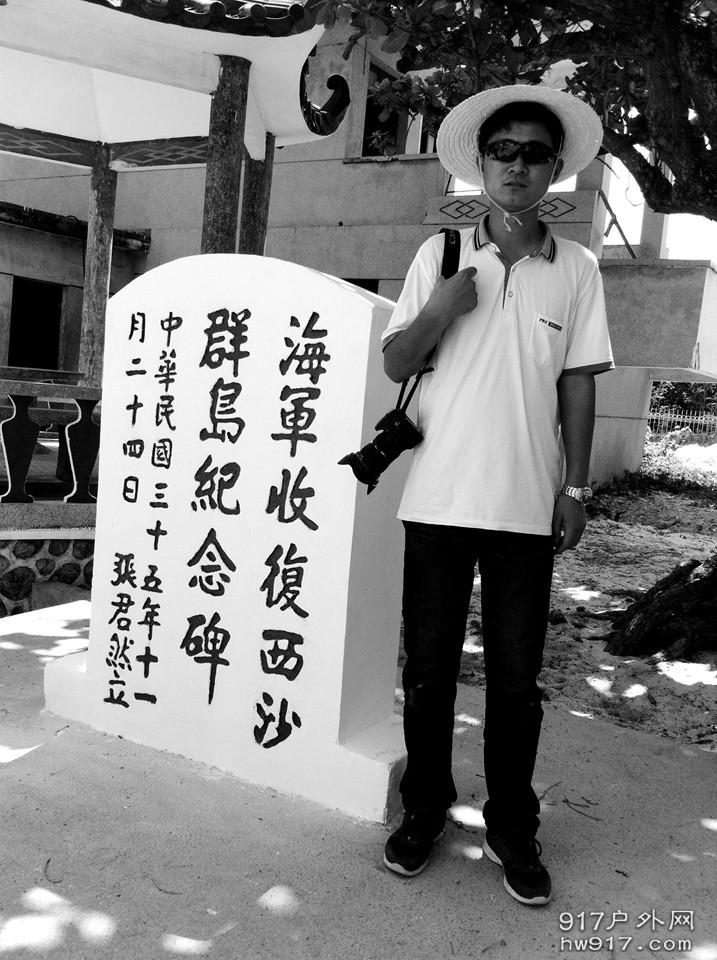 海軍收復西沙
群島紀念碑
中華民國三十五年十一
月二十四日
張君然立
917户外网
hw917.com